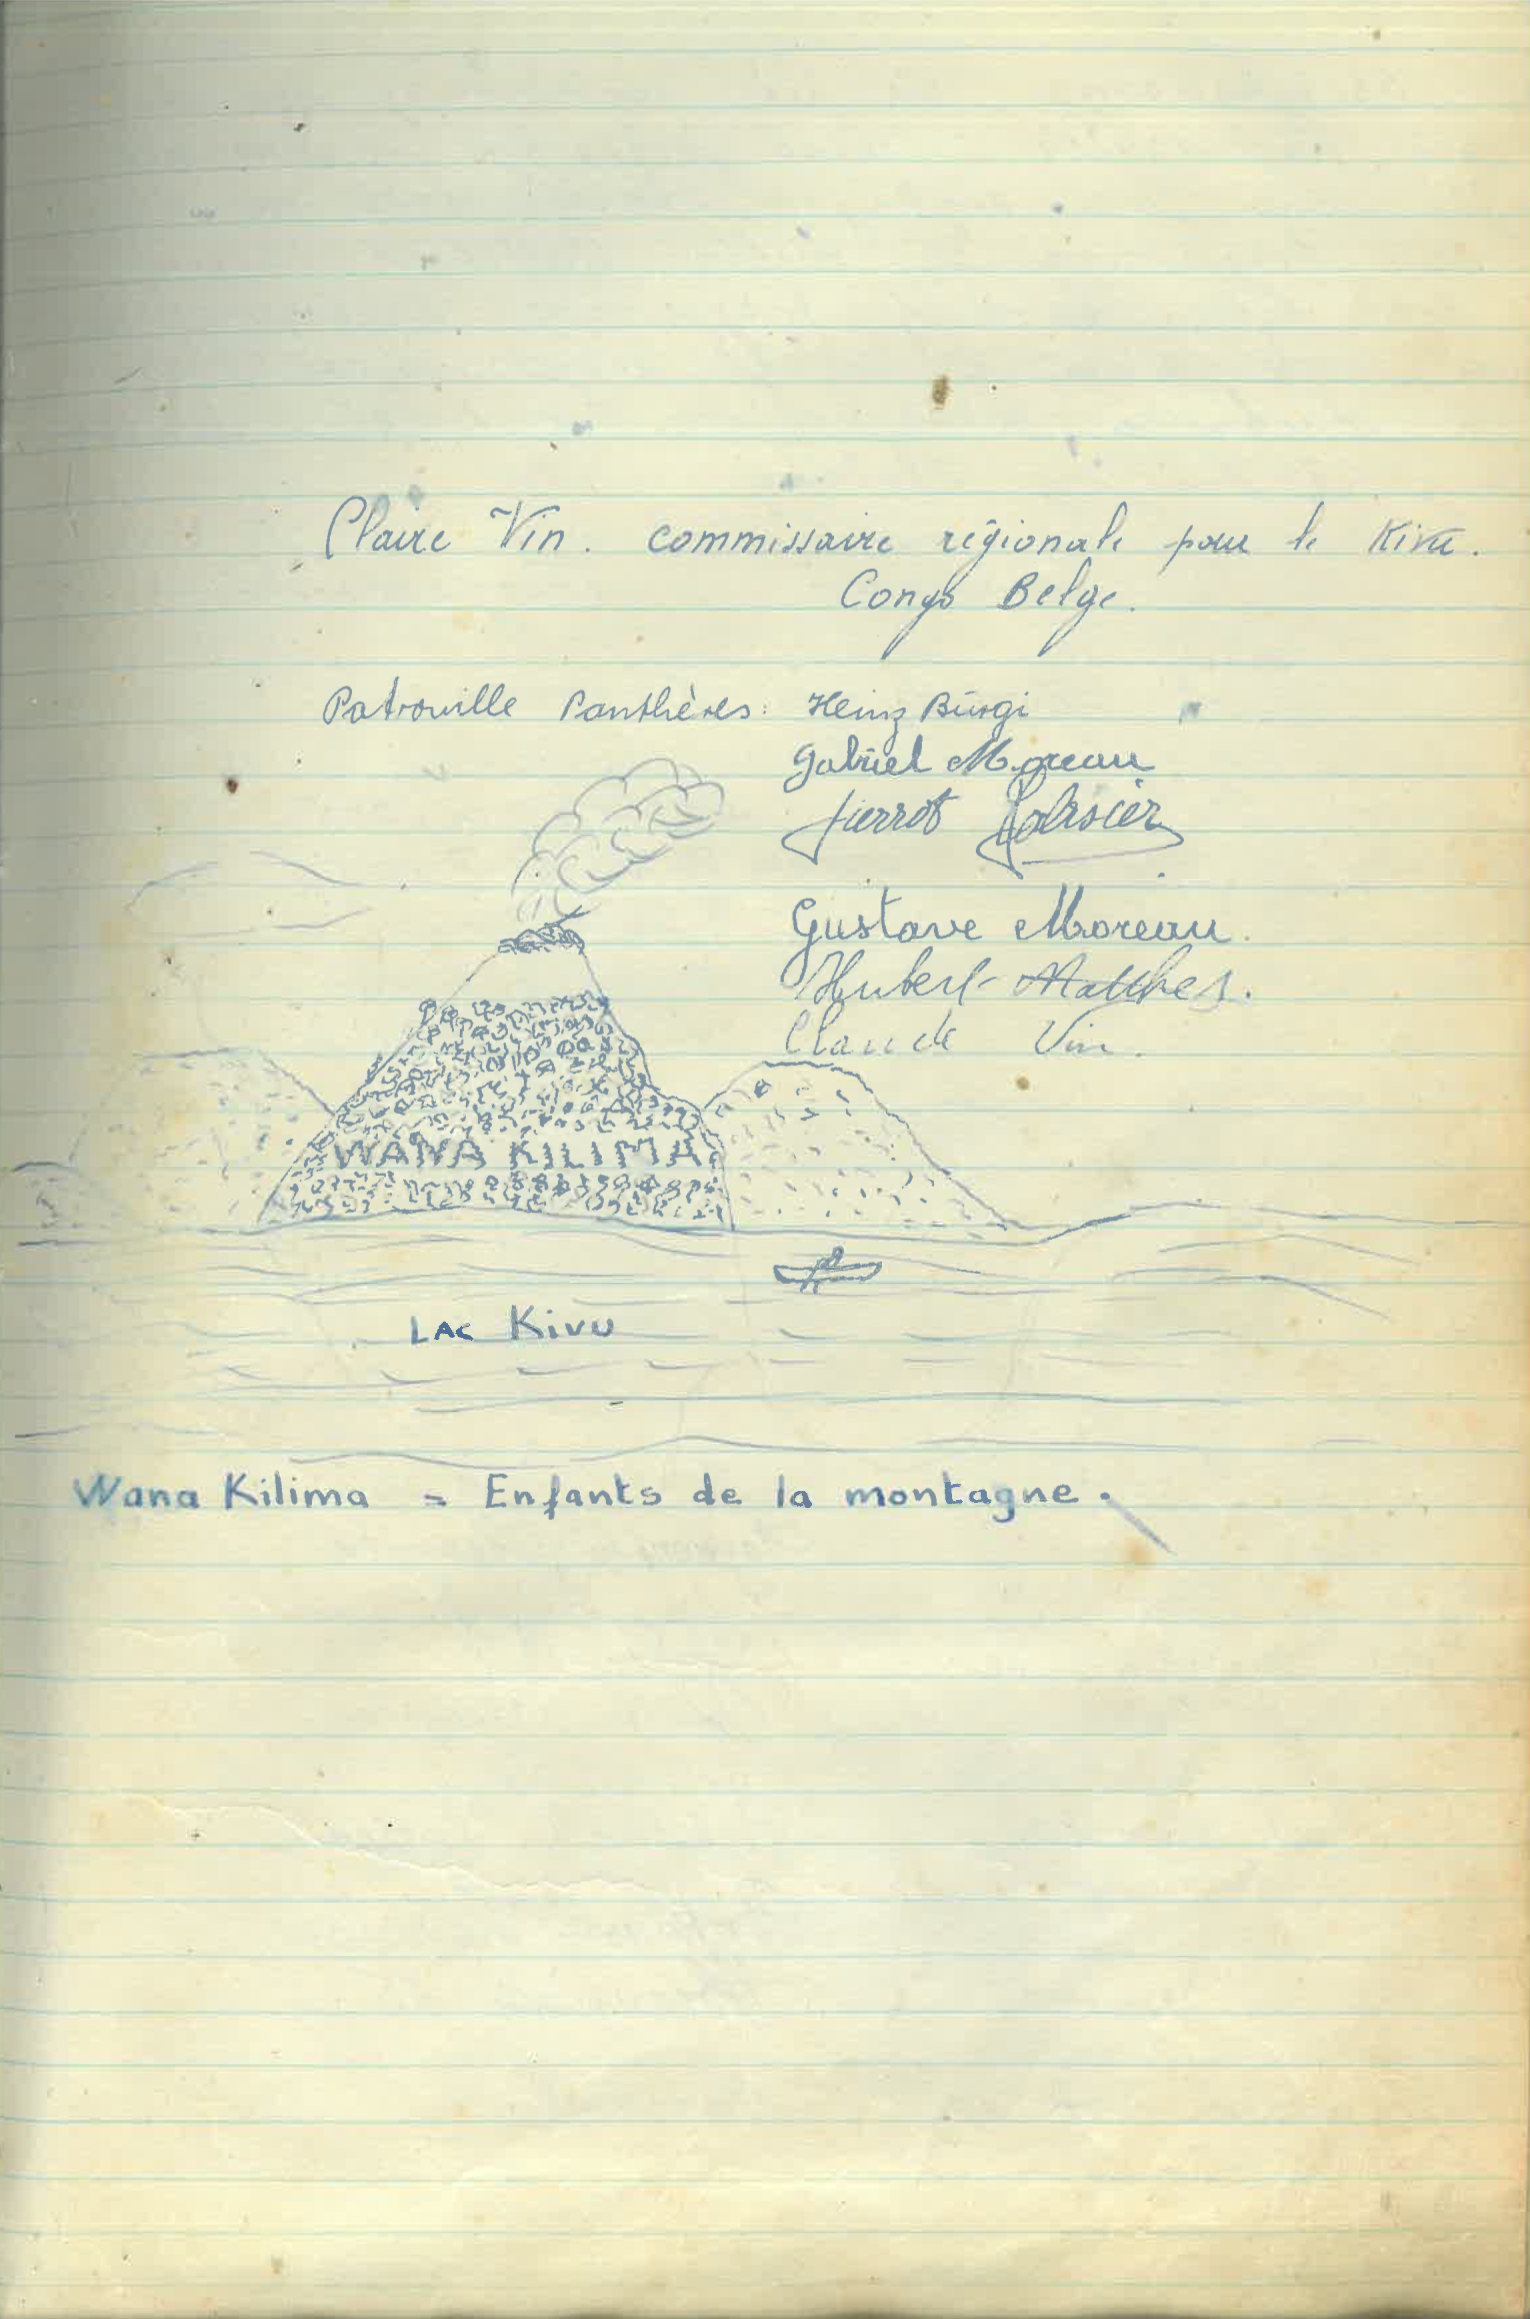 Claire Vin. commissaire régionale pour le Kivu.
Congo Belge.
Patrouille Panthères: Heinz Bürgi
Gabriel Moreau
Pierrot
Gustave Moreau.
Hubert
Claude Vin.
WANA KILIMA
LAC KIVU
Wana Kilima = Enfants de la montagne.